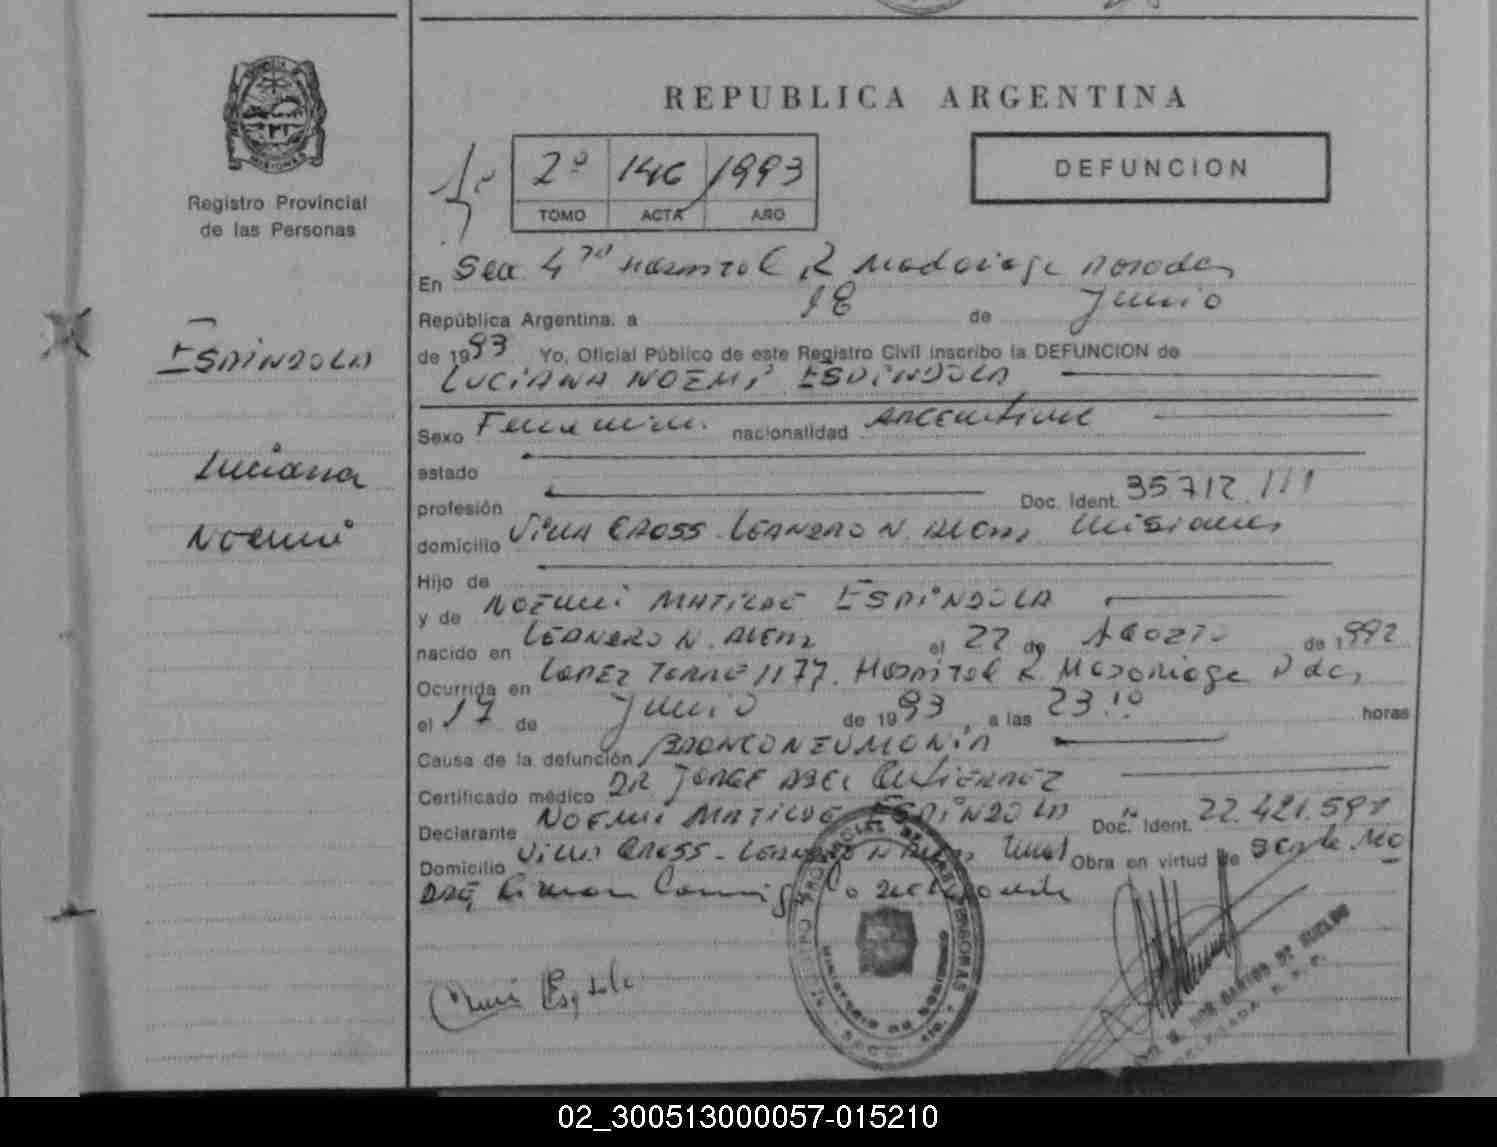 REPUBLICA ARGENTINA
2º 146 1993
TOMO ACTA AÑO
DEFUNCION
Registro Provincial
de las Personas
ESPINDOLA
Luciana
Noemi
En Sec 4ta Hospital R Madariaga Posadas
República Argentina, a 18 de Junio
de 1993 Yo, Oficial Público de este Registro Civil inscribo la DEFUNCION de
LUCIANA NOEMI ESPINDOLA
Sexo Femenino nacionalidad Argentina
estado
profesión Doc. Ident. 35712.111
domicilio Villa CROSS - LEANDRO N. ALEM, Misiones
Hijo de
y de NOEMI MATILDE ESPINDOLA
nacido en LEANDRO N. ALEM el 22 de Agosto de 1992
Ocurrida en LOPEZ TORRES 1177. Hospital R Madariaga Pdas,
el 17 de Junio de 1993, a las 23.10 horas
Causa de la defunción BRONCONEUMONIA
Certificado médico DR JORGE ABEL GUTIERREZ
Declarante NOEMI MATILDE ESPINDOLA Doc. Ident. 22.421.591
Domicilio Villa CROSS - LEANDRO N ALEM Obra en virtud de
MINISTERIO DE GOBIERNO
02_300513000057-015210